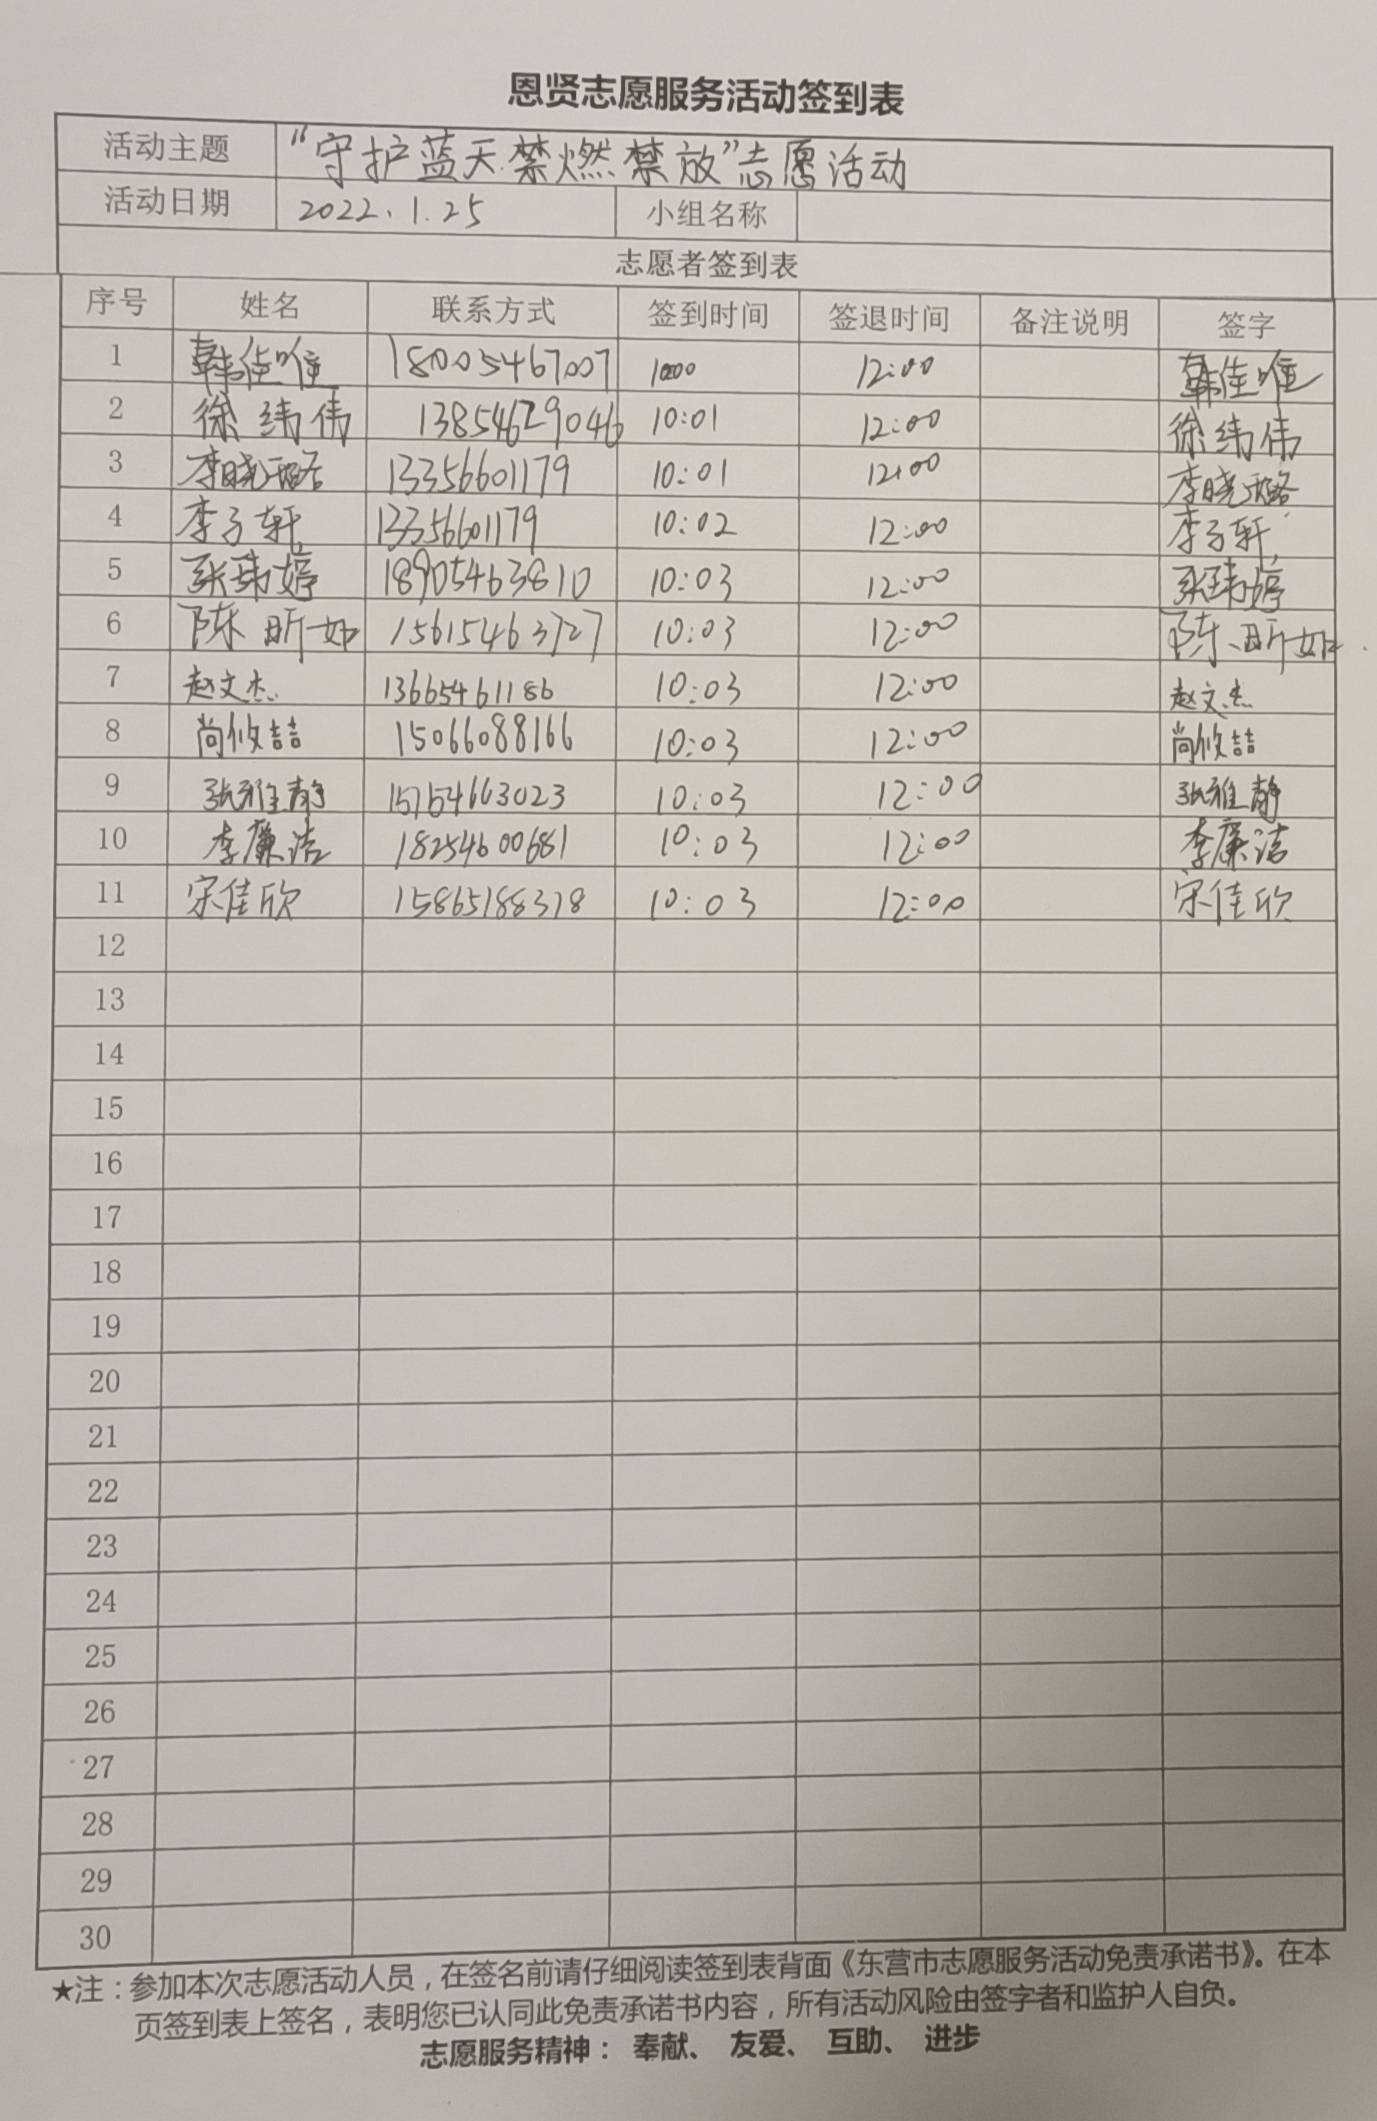 恩贤志愿服务活动签到表
活动主题 “守护蓝天禁燃禁放”志愿活动
活动日期 2022.1.25 小组名称
志愿者签到表
序号 姓名 联系方式 签到时间 签退时间 备注说明 签字
1 韩佳唯 18005467007 1000 12:00 韩佳唯
2 徐纬伟 13854629046 10:01 12:00 徐纬伟
3 李晓璐 13356601179 10:01 12:00 李晓璐
4 李子轩 13356601179 10:02 12:00 李子轩
5 张玮婷 18905463810 10:03 12:00 张玮婷
6 陈昕如 15615463727 10:03 12:00 陈昕如
7 赵文杰 13665461186 10:03 12:00 赵文杰
8 尚攸喆 15066088166 10:03 12:00 尚攸喆
9 张雅静 15764663023 10:03 12:00 张雅静
10 李廉洁 18254600681 10:03 12:00 李廉洁
11 宋佳欣 15865188378 10:03 12:00 宋佳欣
12
13
14
15
16
17
18
19
20
21
22
23
24
25
26
27
28
29
30
★注：参加本次志愿活动人员，在签名前请仔细阅读签到表背面《东营市志愿服务活动免责承诺书》。在本
页签到表上签名，表明您已认同此免责承诺书内容，所有活动风险由签字者和监护人自负。
志愿服务精神： 奉献、 友爱、 互助、 进步